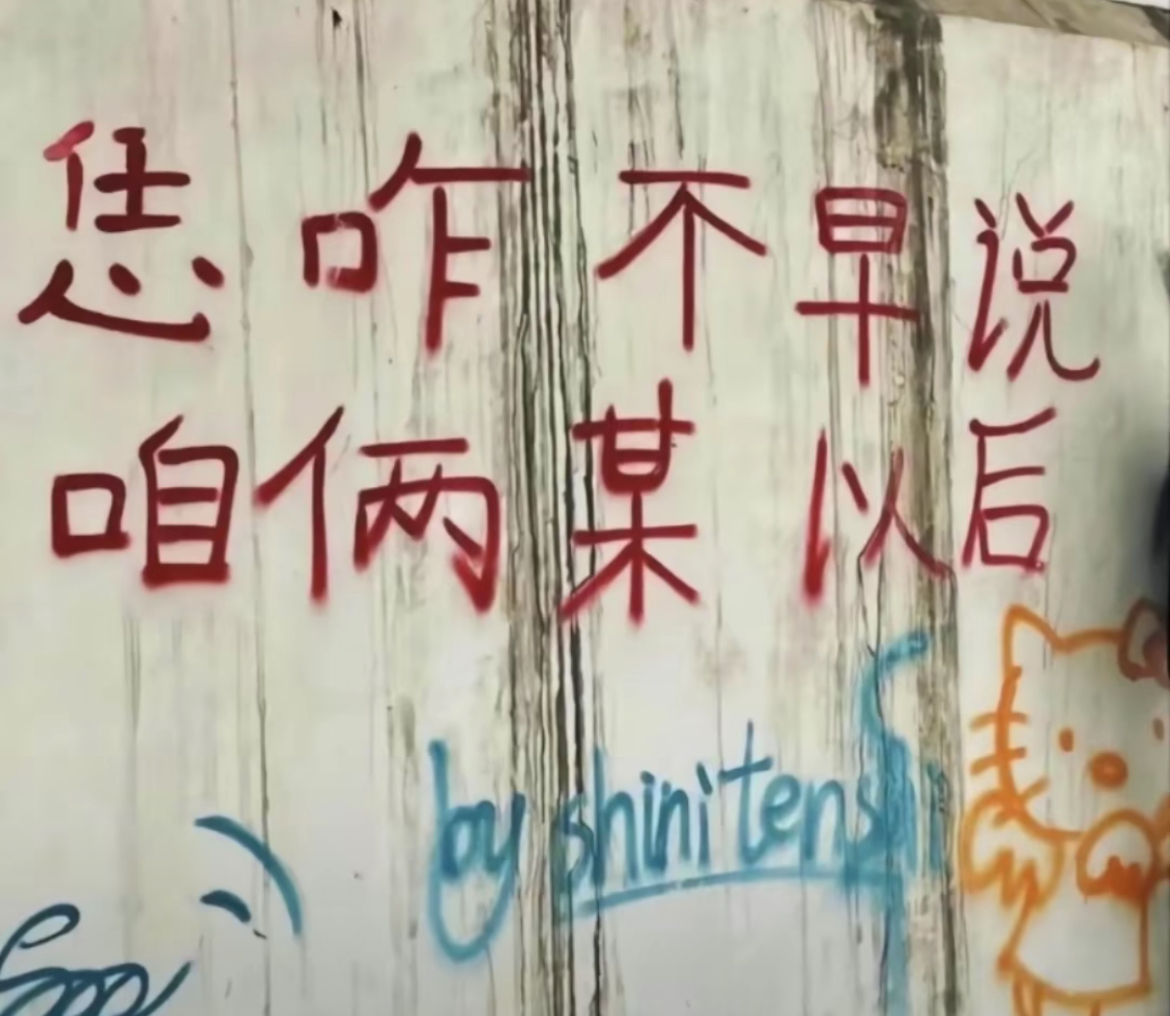 恁咋不早说
咱俩某以后
by shini tenshi